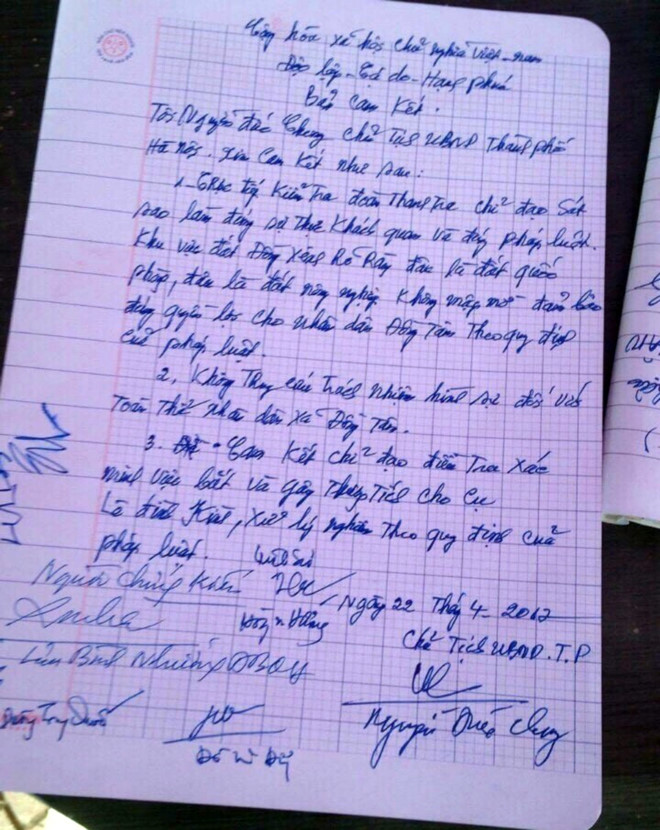 Cộng hòa xã hội chủ nghĩa Việt-nam
Độc lập-Tự do-Hạnh phúc
Bản Cam Kết.
Tôi Nguyễn đức Chung chủ Tịch UBND Thành phố
Hà nội. Xin Cam Kết như sau:
1-Trực tiếp Kiểm Tra đoàn Thanh Tra chỉ đạo Sát
sao làm đúng sự thực Khách quan và đúng pháp luật.
Khu vực đất Đồng Xênh Rõ Ràng đâu là đất quốc
phòng, đâu là đất nông nghiệp Không mập mờ đảm bảo
đúng quyền lợi cho nhân dân Đồng Tâm Theo quy định
của pháp luật.
2, Không Truy cứu Trách nhiệm hình sự đối với
Toàn Thể nhân dân Xã Đồng Tâm.
3. Cam Kết chỉ đạo điều Tra Xác
minh việc bắt và gây Thương Tích cho Cụ
Lê đình Kình, Xử lý nghiêm Theo quy định của
pháp luật.
Người Chứng Kiến
Ngày 22 Tháy 4-2017
Chủ Tịch UBND.T.P
Lưu Bình Nhưỡng ĐBQH
Nguyễn Đức Chung